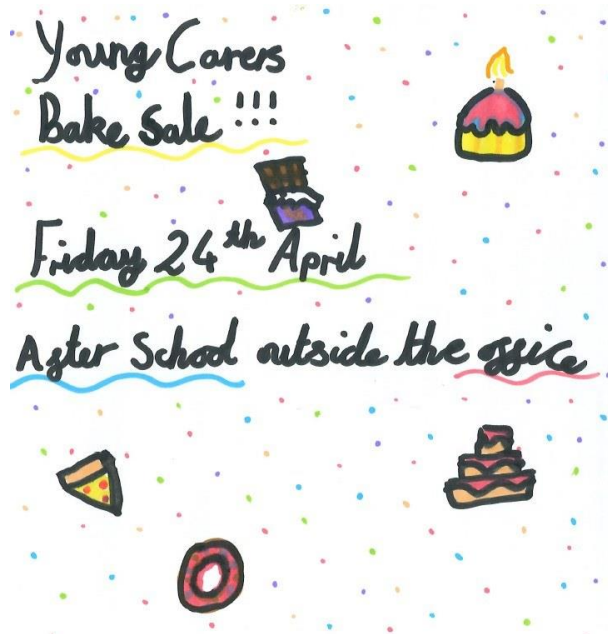 Young Carers
Bake Sale !!!
Friday 24th April
After School outside the office